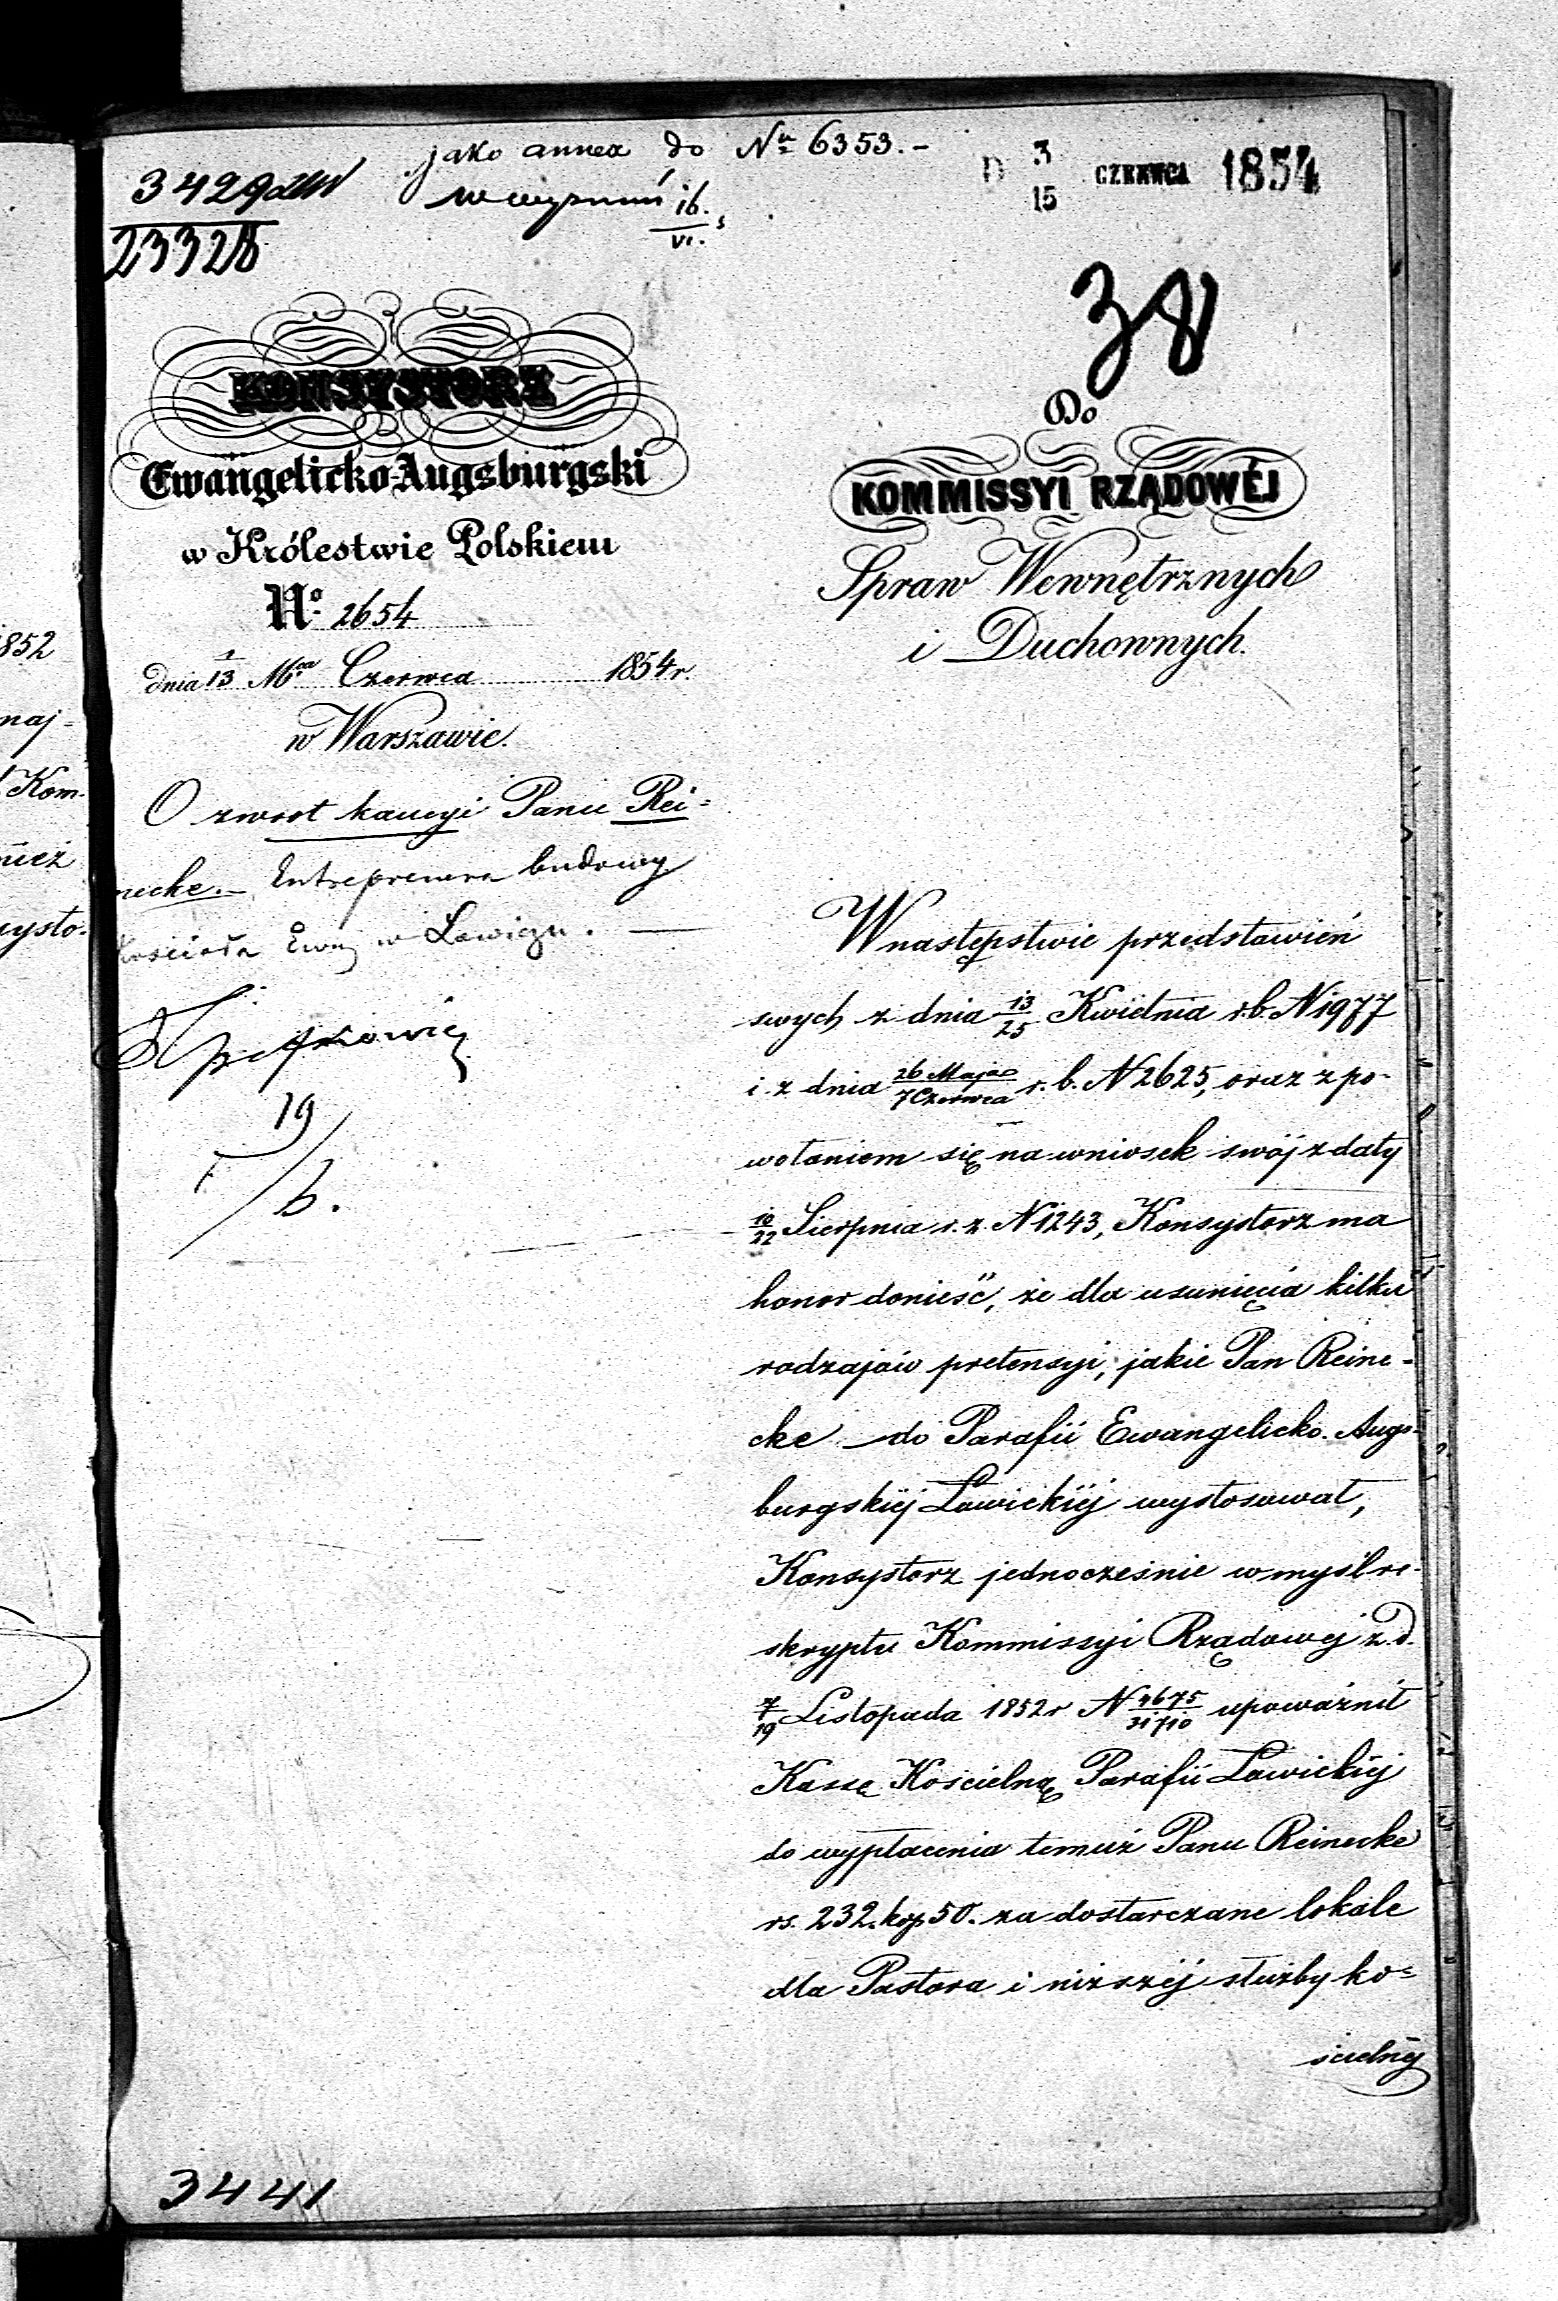 jako annex do Nu 6353.-
D 3/15 CZERWCA 1854
3429
23328
16./VI.
38
KONSYSTORZ
Ewangelicko-Augsburgski
w Królestwie Polskiem
No 2654
dnia 1/13 Mca Czerwca 1854 r.
w Warszawie.
O zwrot kaucyi Panu Rei=
necke.- Entreprenera budowy
Kościoła Ewang w Łowiczu. —
19
/6.
Do
KOMMISSYI RZĄDOWÉJ
Spraw Wewnętrznych
i Duchownych.
W następstwie przedstawień
swych z dnia 13/25 Kwietnia r.b. N 1977
i z dnia 26 Maja/7 Czerwca r. b. N 2625, oraz z po-
wołaniem się na wniosek swój z daty
10/22 Sierpnia r. z. N 1243, Konsystorz ma
honor donieść, że dla usunięcia kilku
rodzajów pretensyi, jakie Pan Reine=
cke do Parafii Ewangelicko-Augs-
burgskiéj Łowickiéj wystosował,
Konsystorz jednocześnie w myśl re-
skryptu Kommissyi Rządowej z d.
7/19 Listopada 1852 r N 4675/31710 upoważnił
Kassę Kościelną Parafii Łowickiéj
do wypłacenia temuż Panu Reinecke
rs. 232. kop 50. za dostarczane lokale
dla Pastora i niższéj służby ko=
ścielnéj
3441
1852
naj=
Kom-
nież
wysto-